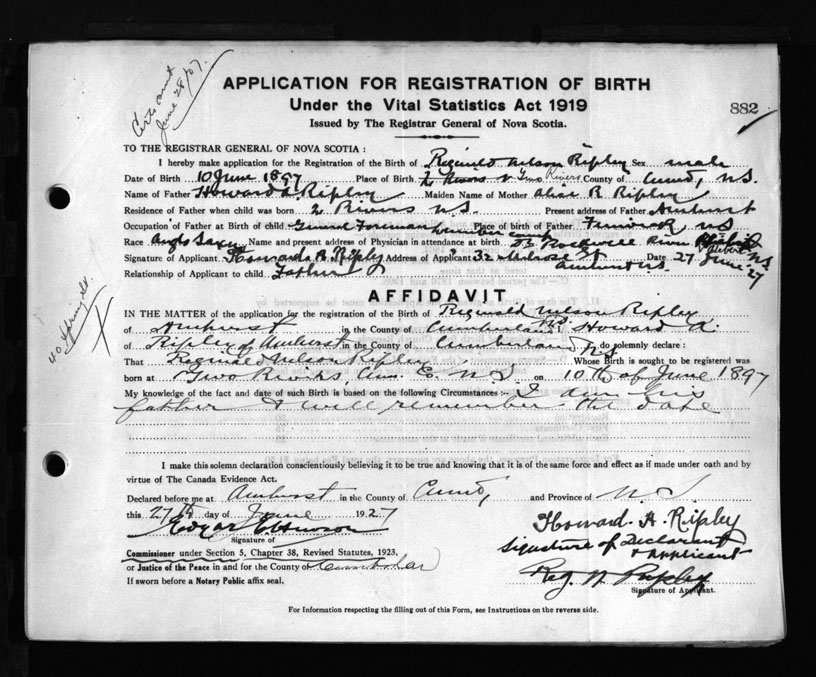 Certs sent
June 28/27.
APPLICATION FOR REGISTRATION OF BIRTH
Under the Vital Statistics Act 1919
882
Issued by The Registrar General of Nova Scotia.
TO THE REGISTRAR GENERAL OF NOVA SCOTIA :
I hereby make application for the Registration of the Birth of Reginald Nelson Ripley Sex male
Date of Birth 10 June 1897 Place of Birth 2 Rivers Two Rivers County of Cumb, N.S.
Name of Father Howard A. Ripley Maiden Name of Mother Alice R Ripley
Residence of Father when child was born 2 Rivers N.S. Present address of Father Amherst
Occupation of Father at Birth of child General Foreman lumber camp Place of birth of Father Fenwick, N.S.
Race Anglo Saxon Name and present address of Physician in attendance at birth Dr Rockwell River Hebert N.S.
Signature of Applicant Howard A. Ripley Address of Applicant 32 Melrose St Amherst N.S. Date 27 June 27
Relationship of Applicant to child Father
40 Spring St
AFFIDAVIT
IN THE MATTER of the application for the registration of the Birth of Reginald Nelson Ripley
of Amherst in the County of Cumberland N.S. Howard A.
of Ripley of Amherst in the County of Cumberland N.S. do solemnly declare :
That Reginald Nelson Ripley Whose Birth is sought to be registered was
born at Two Rivers, N.S. on 10th of June 1897
My knowledge of the fact and date of such Birth is based on the following Circumstances :- I am his
father & well remember the date
I make this solemn declaration conscientiously believing it to be true and knowing that it is of the same force and effect as if made under oath and by
virtue of The Canada Evidence Act.
Declared before me at Amherst in the County of Cumb, and Province of N.S.
this 27th day of June 1927
Howard. A. Ripley
Signature of Declarant
& Applicant
Signature of
Commissioner under Section 5, Chapter 38, Revised Statutes, 1923,
or Justice of the Peace in and for the County of Cumberland
Reg. N Ripley
Signature of Applicant.
If sworn before a Notary Public affix seal.
For Information respecting the filling out of this Form, see Instructions on the reverse side.